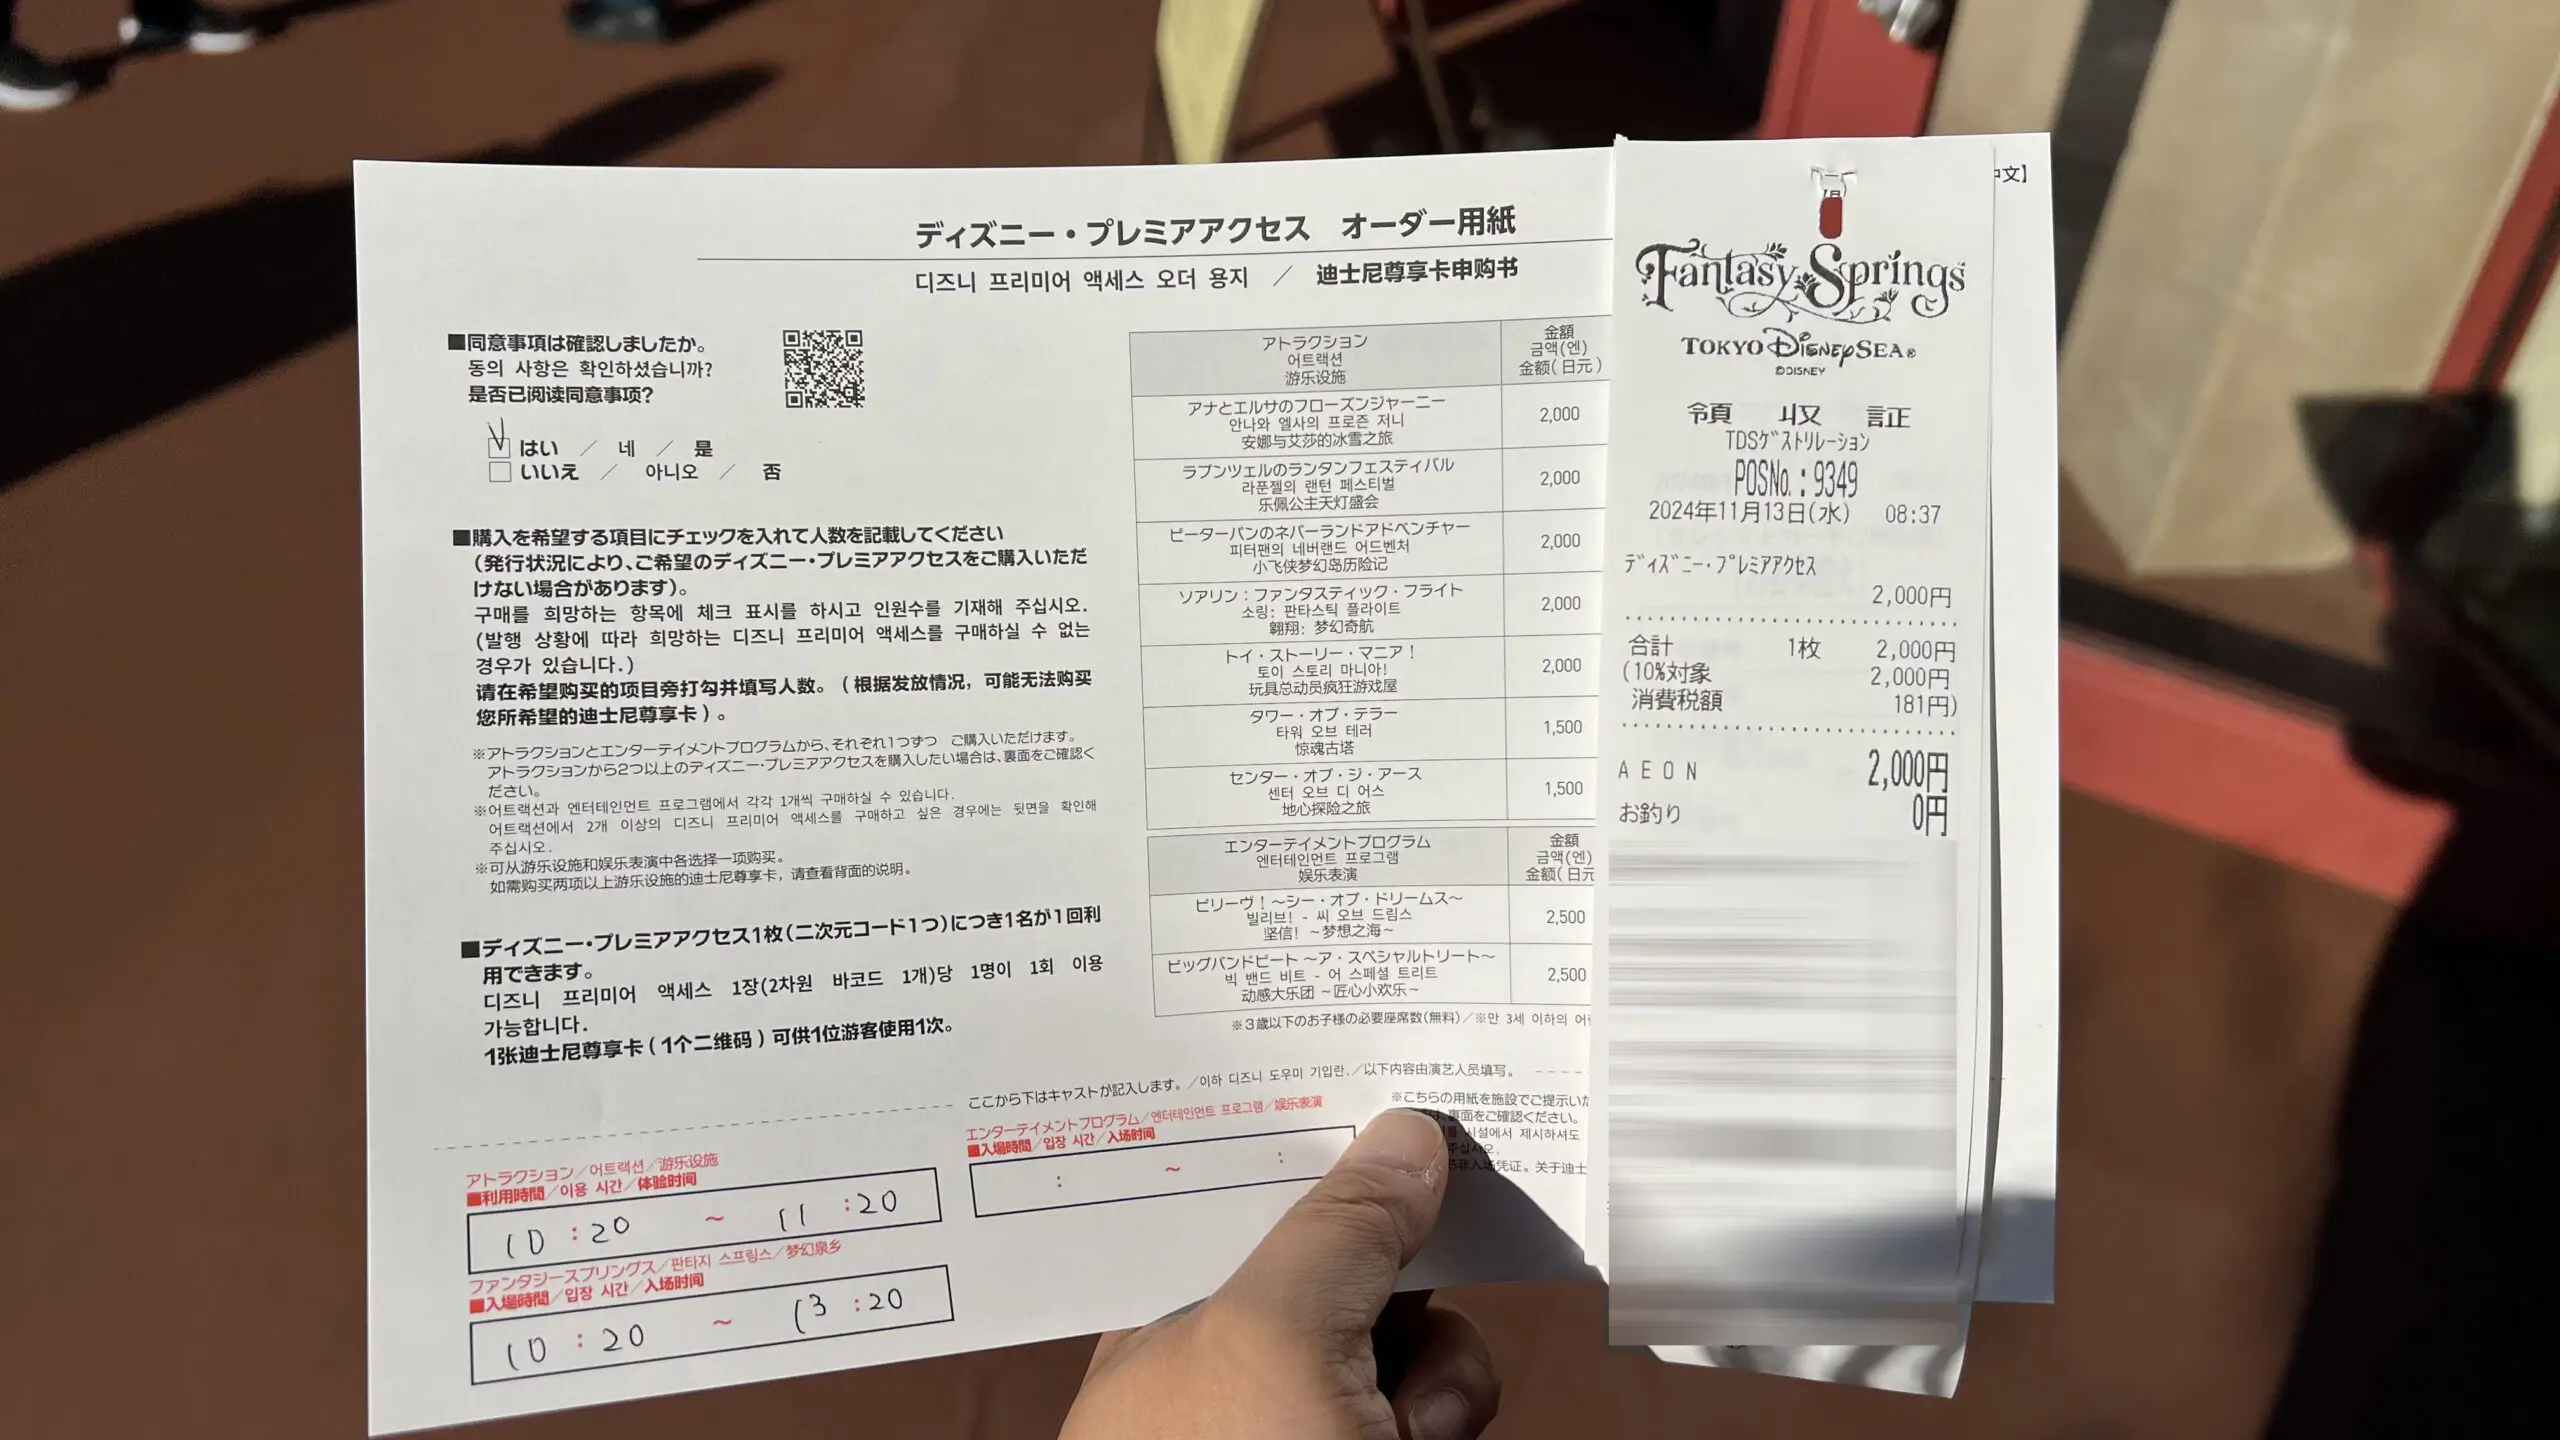 ディズニー・プレミアアクセス オーダー用紙
디즈니 프리미어 액세스 오더 용지 ／ 迪士尼尊享卡申购书
中文】
■同意事項は確認しましたか。
동의 사항은 확인하셨습니까?
是否已阅读同意事项?
はい ／ 네 ／ 是
いいえ ／ 아니오 ／ 否
■購入を希望する項目にチェックを入れて人数を記載してください
（発行状況により、ご希望のディズニー・プレミアアクセスをご購入いただ
けない場合があります）。
구매를 희망하는 항목에 체크 표시를 하시고 인원수를 기재해 주십시오.
(발행 상황에 따라 희망하는 디즈니 프리미어 액세스를 구매하실 수 없는
경우가 있습니다.)
请在希望购买的项目旁打勾并填写人数。（根据发放情况，可能无法购买
您所希望的迪士尼尊享卡）。
※アトラクションとエンターテイメントプログラムから、それぞれ1つずつ ご購入いただけます。
アトラクションから2つ以上のディズニー・プレミアアクセスを購入したい場合は、裏面をご確認く
ださい。
※어트랙션과 엔터테인먼트 프로그램에서 각각 1개씩 구매하실 수 있습니다.
어트랙션에서 2개 이상의 디즈니 프리미어 액세스를 구매하고 싶은 경우에는 뒷면을 확인해
주십시오.
※可从游乐设施和娱乐表演中各选择一项购买。
如需购买两项以上游乐设施的迪士尼尊享卡，请查看背面的说明。
■ディズニー・プレミアアクセス1枚（二次元コード1つ）につき1名が1回利
用できます。
디즈니 프리미어 액세스 1장(2차원 바코드 1개)당 1명이 1회 이용
가능합니다.
1张迪士尼尊享卡（1个二维码）可供1位游客使用1次。
アトラクション 金額
어트랙션 금액(엔)
游乐设施 金额(日元)
アナとエルサのフローズンジャーニー
안나와 엘사의 프로즌 저니 2,000
安娜与艾莎的冰雪之旅
ラプンツェルのランタンフェスティバル
라푼젤의 랜턴 페스티벌 2,000
乐佩公主天灯盛会
ピーターパンのネバーランドアドベンチャー
피터팬의 네버랜드 어드벤처 2,000
小飞侠梦幻岛历险记
ソアリン：ファンタスティック・フライト
소링: 판타스틱 플라이트 2,000
翱翔: 梦幻奇航
トイ・ストーリー・マニア！
토이 스토리 마니아! 2,000
玩具总动员疯狂游戏屋
タワー・オブ・テラー
타워 오브 테러 1,500
惊魂古塔
センター・オブ・ジ・アース
센터 오브 디 어스 1,500
地心探险之旅
エンターテイメントプログラム 金額
엔터테인먼트 프로그램 금액(엔)
娱乐表演 金额(日元
ビリーヴ！～シー・オブ・ドリームス～
빌리브! - 씨 오브 드림스 2,500
坚信! ～梦想之海～
ビッグバンドビート ～ア・スペシャルトリート～
빅 밴드 비트 - 어 스페셜 트리트 2,500
动感大乐团 ～匠心小欢乐～
※３歳以下のお子様の必要座席数（無料）／※만 3세 이하의 어린
ここから下はキャストが記入します。／이하 디즈니 도우미 기입란.／以下内容由演艺人员填写。
アトラクション／어트랙션／游乐设施
■利用時間／이용 시간／体验时间
10 : 20 ～ 11 : 20
ファンタジースプリングス／판타지 스프링스／梦幻泉乡
■入場時間／입장 시간／入场时间
10 : 20 ～ 13 : 20
エンターテイメントプログラム／엔터테인먼트 프로그램／娱乐表演
■入場時間／입장 시간／入场时间
: ～ :
※こちらの用紙を施設でご提示いた
は、裏面をご確認ください。
시설에서 제시하셔도
주십시오.
入场凭证。关于迪士
Fantasy Springs
TOKYO DISNEYSEA®
©DISNEY
領 収 証
TDSゲストリレーション
POSNo.:9349
2024年11月13日(水) 08:37
ディズニー・プレミアアクセス
2,000円
合計 1枚 2,000円
(10%対象 2,000円
消費税額 181円)
AEON 2,000円
お釣り 0円